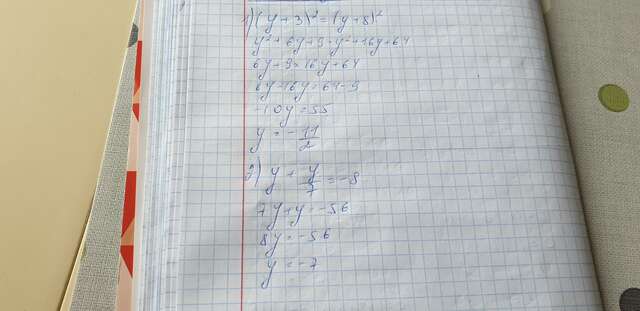 1) (y + 3)² = (y + 8)²
y² + 6y + 9 = y² + 16y + 64
6y + 9 = 16y + 64
6y - 16y = 64 - 9
-10y = 55
y = - 11/2
2) y + y/7 = -8
7y + y = -56
8y = -56
y = -7